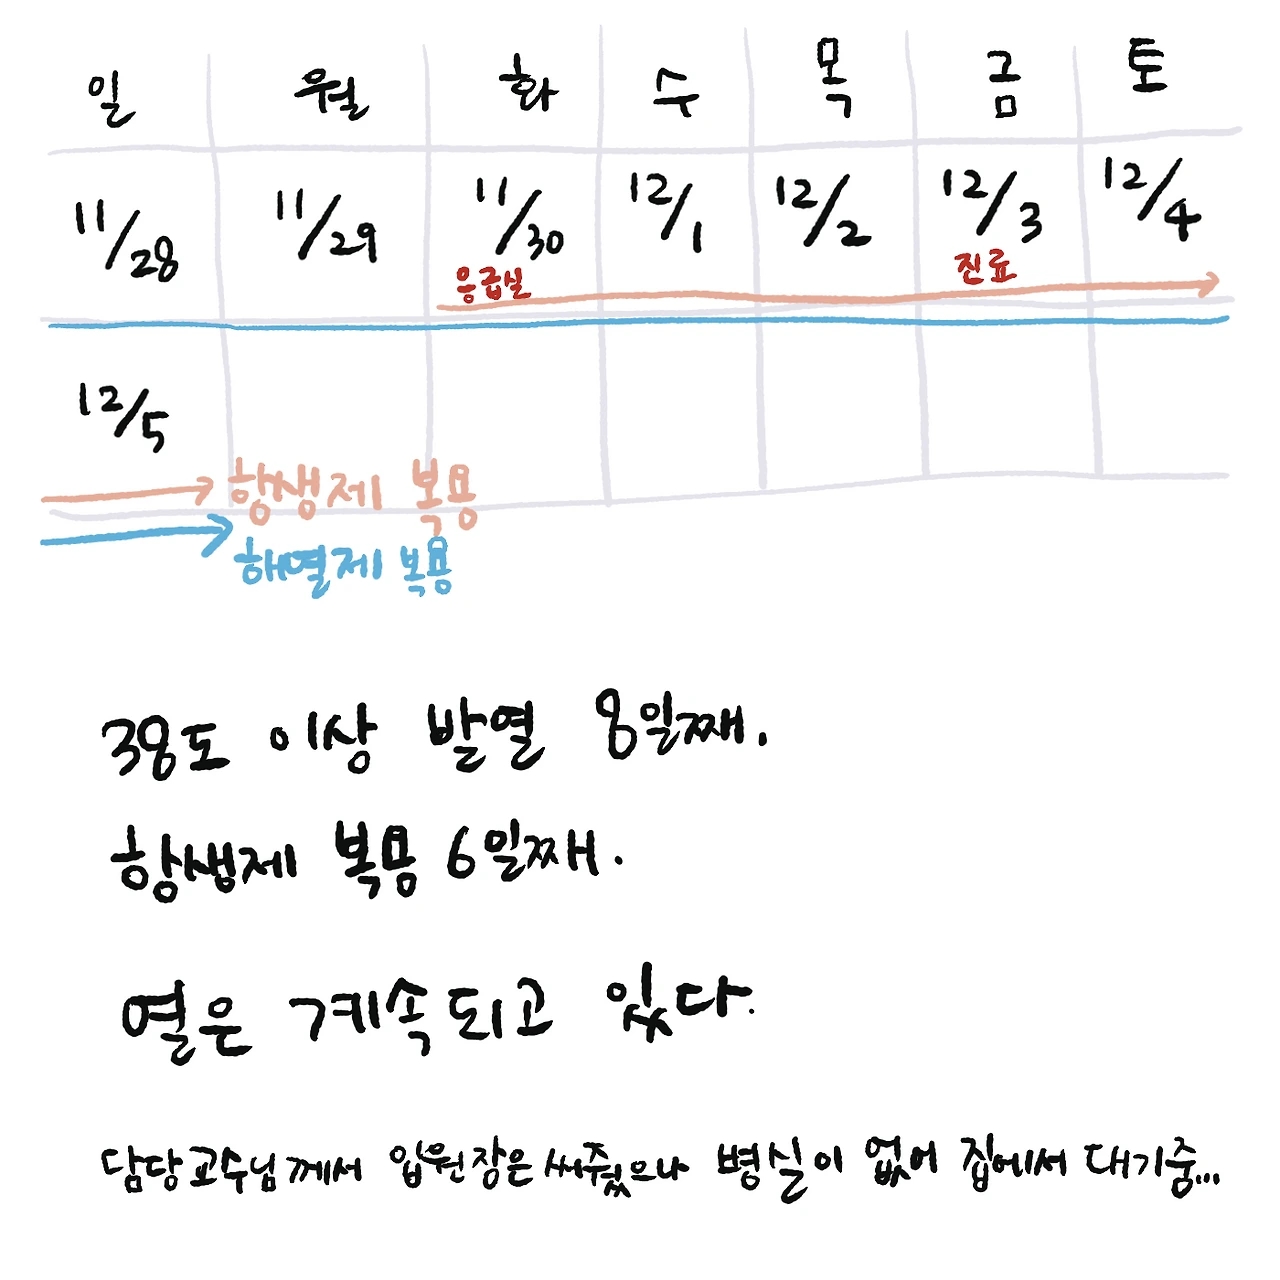 일 월 화 수 목 금 토
11/28 11/29 11/30 12/1 12/2 12/3 12/4
응급실 진료
12/5
항생제 복용
해열제 복용
38도 이상 발열 8일째.
항생제 복용 6일째.
열은 계속되고 있다.
담당교수님께서 입원장은 써주셨으나 병실이 없어 집에서 대기중...